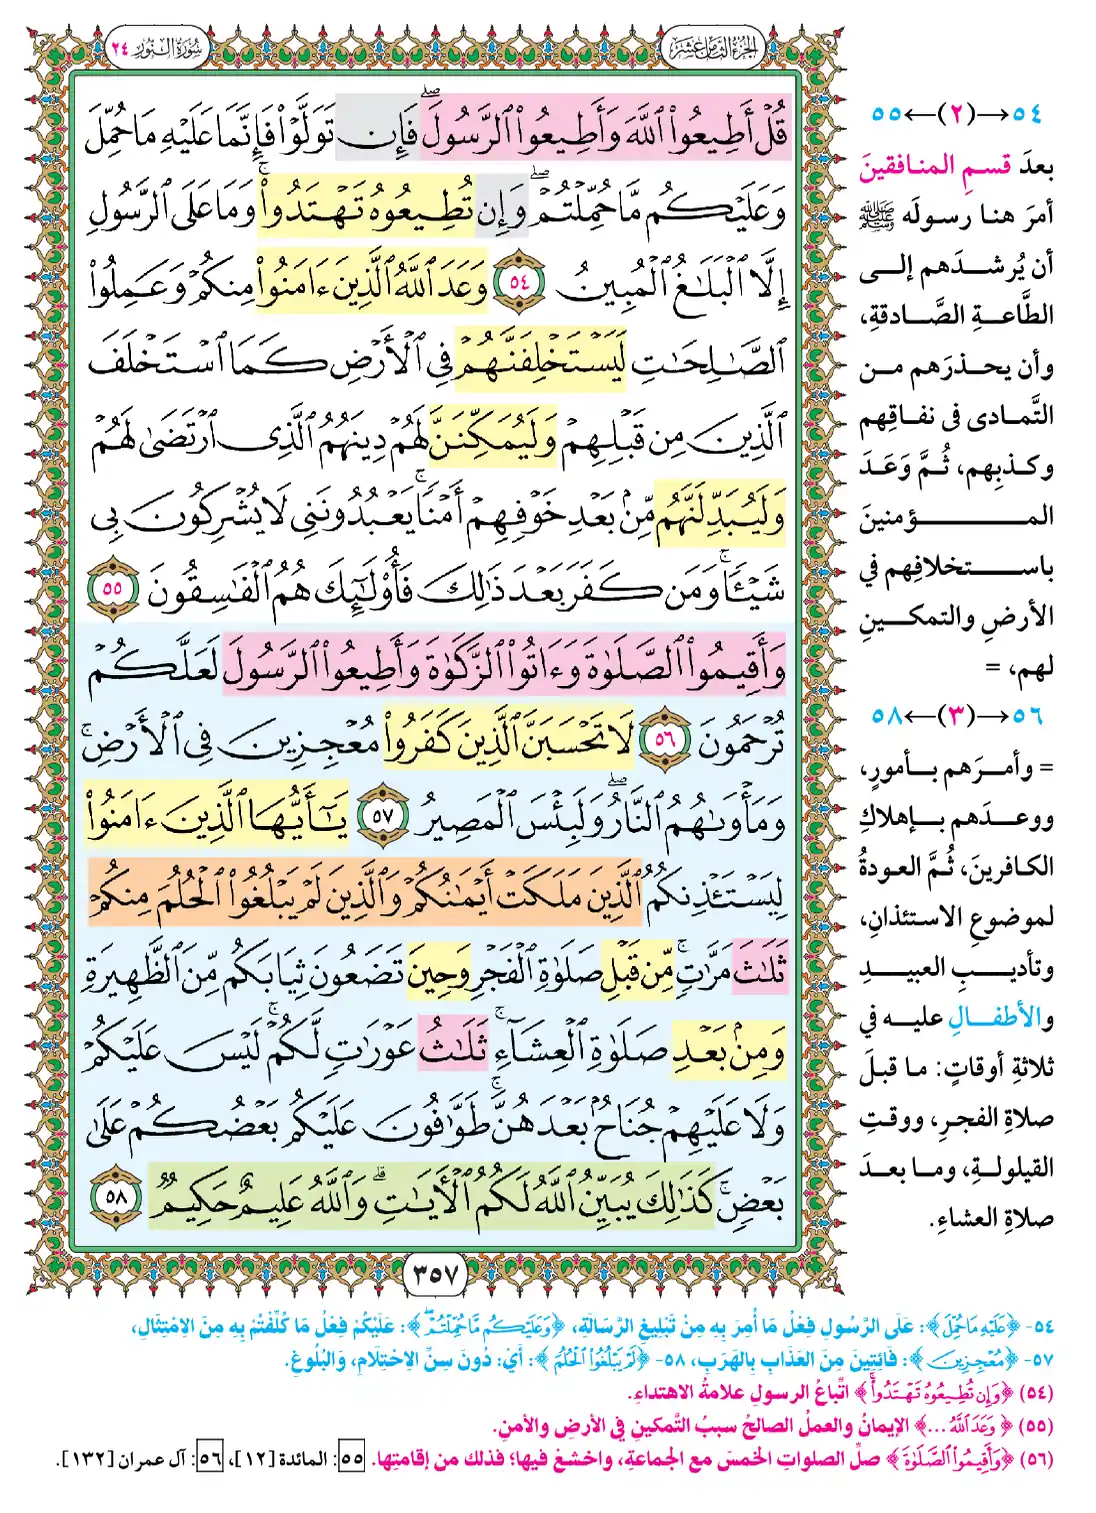 الجزء الثامن عشر
سورة النور ٢٤
قُلْ أَطِيعُوا۟ ٱللَّهَ وَأَطِيعُوا۟ ٱلرَّسُولَ ۖ فَإِن تَوَلَّوْا۟ فَإِنَّمَا عَلَيْهِ مَا حُمِّلَ
وَعَلَيْكُم مَّا حُمِّلْتُمْ ۖ وَإِن تُطِيعُوهُ تَهْتَدُوا۟ ۚ وَمَا عَلَى ٱلرَّسُولِ
إِلَّا ٱلْبَلَـٰغُ ٱلْمُبِينُ ٥٤ وَعَدَ ٱللَّهُ ٱلَّذِينَ ءَامَنُوا۟ مِنكُمْ وَعَمِلُوا۟
ٱلصَّـٰلِحَـٰتِ لَيَسْتَخْلِفَنَّهُمْ فِى ٱلْأَرْضِ كَمَا ٱسْتَخْلَفَ
ٱلَّذِينَ مِن قَبْلِهِمْ وَلَيُمَكِّنَنَّ لَهُمْ دِينَهُمُ ٱلَّذِى ٱرْتَضَىٰ لَهُمْ
وَلَيُبَدِّلَنَّهُم مِّنۢ بَعْدِ خَوْفِهِمْ أَمْنًا ۚ يَعْبُدُونَنِى لَا يُشْرِكُونَ بِى
شَيْـًٔا ۚ وَمَن كَفَرَ بَعْدَ ذَٰلِكَ فَأُو۟لَـٰٓئِكَ هُمُ ٱلْفَـٰسِقُونَ ٥٥
وَأَقِيمُوا۟ ٱلصَّلَوٰةَ وَءَاتُوا۟ ٱلزَّكَوٰةَ وَأَطِيعُوا۟ ٱلرَّسُولَ لَعَلَّكُمْ
تُرْحَمُونَ ٥٦ لَا تَحْسَبَنَّ ٱلَّذِينَ كَفَرُوا۟ مُعْجِزِينَ فِى ٱلْأَرْضِ ۚ
وَمَأْوَىٰهُمُ ٱلنَّارُ ۖ وَلَبِئْسَ ٱلْمَصِيرُ ٥٧ يَـٰٓأَيُّهَا ٱلَّذِينَ ءَامَنُوا۟
لِيَسْتَـْٔذِنكُمُ ٱلَّذِينَ مَلَكَتْ أَيْمَـٰنُكُمْ وَٱلَّذِينَ لَمْ يَبْلُغُوا۟ ٱلْحُلُمَ مِنكُمْ
ثَلَـٰثَ مَرَّٰتٍ ۚ مِّن قَبْلِ صَلَوٰةِ ٱلْفَجْرِ وَحِينَ تَضَعُونَ ثِيَابَكُم مِّنَ ٱلظَّهِيرَةِ
وَمِنۢ بَعْدِ صَلَوٰةِ ٱلْعِشَآءِ ۚ ثَلَـٰثُ عَوْرَٰتٍ لَّكُمْ ۚ لَيْسَ عَلَيْكُمْ
وَلَا عَلَيْهِمْ جُنَاحٌۢ بَعْدَهُنَّ ۚ طَوَّٰفُونَ عَلَيْكُم بَعْضُكُمْ عَلَىٰ
بَعْضٍ ۚ كَذَٰلِكَ يُبَيِّنُ ٱللَّهُ لَكُمُ ٱلْـَٔايَـٰتِ ۗ وَٱللَّهُ عَلِيمٌ حَكِيمٌ ٥٨
٣٥٧
٥٤→(٢)←٥٥
بعدَ قسمِ المنافقينَ
أمرَ هنا رسولَه ﷺ
أن يُرشدَهم إلى
الطَّاعةِ الصَّادقةِ،
وأن يحذرَهم من
التَّمادى فى نفاقِهم
وكذبِهم، ثُمَّ وَعَدَ
المؤمنينَ
باستخلافِهم في
الأرضِ والتمكينِ
لهم، =
٥٦→(٣)←٥٨
= وأمرَهم بأمورٍ،
ووعدَهم بإهلاكِ
الكافرينَ، ثُمَّ العودةُ
لموضوعِ الاستئذانِ،
وتأديبِ العبيدِ
والأطفالِ عليه في
ثلاثةِ أوقاتٍ: ما قبلَ
صلاةِ الفجرِ، ووقتِ
القيلولةِ، وما بعدَ
صلاةِ العشاءِ.
٥٤- ﴿عَلَيْهِ مَا حُمِّلَ﴾: عَلَى الرَّسُولِ فِعْلُ مَا أُمِرَ بِهِ مِنْ تَبْلِيغِ الرِّسَالَةِ، ﴿وَعَلَيْكُم مَّا حُمِّلْتُمْ ۖ﴾: عَلَيْكُمْ فِعْلُ مَا كُلِّفْتُمْ بِهِ مِنَ الِامْتِثَالِ،
٥٧- ﴿مُعْجِزِينَ﴾: فَائِتِينَ مِنَ العَذَابِ بِالهَرَبِ، ٥٨- ﴿لَمْ يَبْلُغُوا۟ ٱلْحُلُمَ﴾: أَيْ: دُونَ سِنِّ الِاحْتِلَامِ، وَالبُلُوغِ.
(٥٤) ﴿وَإِن تُطِيعُوهُ تَهْتَدُوا۟ ۚ﴾ اتِّباعُ الرسولِ علامةُ الاهتداءِ.
(٥٥) ﴿وَعَدَ ٱللَّهُ ...﴾ الإيمانُ والعملُ الصالحُ سببُ التَّمكينِ فِي الأرضِ والأمنِ.
(٥٦) ﴿وَأَقِيمُوا۟ ٱلصَّلَوٰةَ﴾ صلِّ الصلواتِ الخمسَ مع الجماعةِ، واخشعْ فيها؛ فذلك من إقامتِها. ٥٥: المائدة [١٢]، ٥٦: آل عمران [١٣٢].